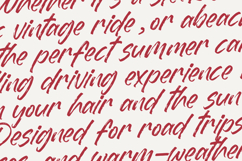 Whether it's a
vintage ride, or a beac
the perfect summer ca
ling driving experience
your hair and the sun
Designed for road trips
and warm-weather